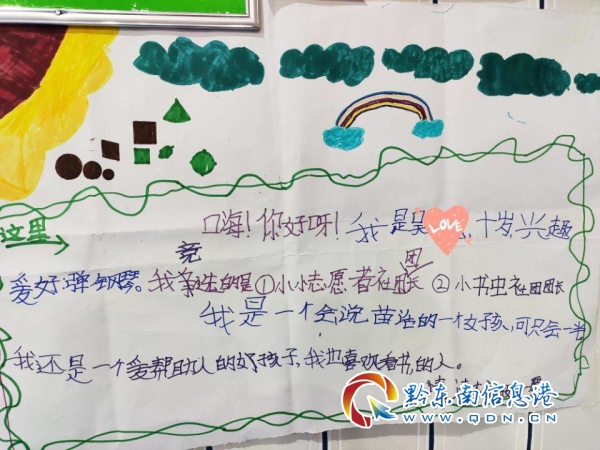 口海！你好呀！我是吴LOVE，十岁，兴趣
这里
爱好弹钢琴。我竞选的是①小小志愿者社团长 ②小书虫社团团长
我是一个会说苗话的一个女孩，可只会一半
我还是一个爱帮助人的好孩子，我也喜欢看书的人。
黔东南信息港
WWW.QDN.CN